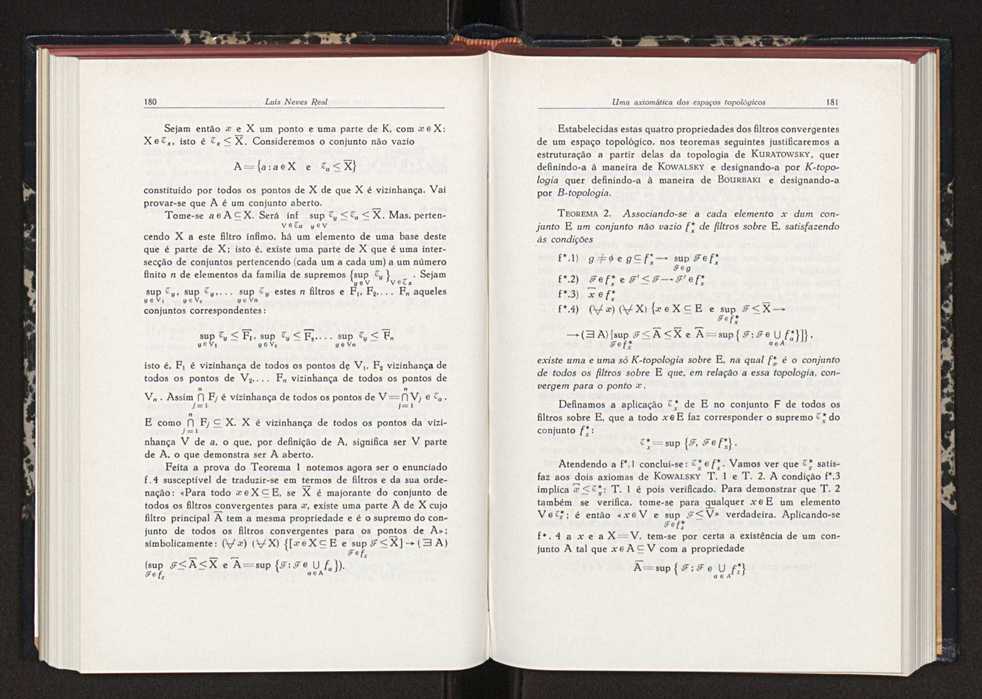 180 Luís Neves Real
Sejam então x e X um ponto e uma parte de K, com x ∈ X;
X ∈ ζₓ, isto é ζₓ ≤ X̅. Consideremos o conjunto não vazio
A = {a : a ∈ X e ζₐ ≤ X̅}
constituído por todos os pontos de X de que X é vizinhança. Vai
provar-se que A é um conjunto aberto.
Tome-se a ∈ A ⊆ X. Será inf sup ζ_y ≤ ζₐ ≤ X̅. Mas, perten-
V ∈ ζₐ y ∈ V
cendo X a este filtro ínfimo, há um elemento de uma base deste
que é parte de X; isto é, existe uma parte de X que é uma inter-
secção de conjuntos pertencendo (cada um a cada um) a um número
finito n de elementos da família de supremos {sup ζ_y}. Sejam
sup ζ_y, sup ζ_y, . . . sup ζ_y estes n filtros e F₁, F₂, . . . Fₙ aqueles
y ∈ V₁ y ∈ V₂ y ∈ Vₙ
conjuntos correspondentes:
sup ζ_y ≤ F̅₁, sup ζ_y ≤ F̅₂, . . . sup ζ_y ≤ F̅ₙ
y ∈ V₁ y ∈ V₂ y ∈ Vₙ
isto é, F₁ é vizinhança de todos os pontos de V₁, F₂ vizinhança de
todos os pontos de V₂, . . . Fₙ vizinhança de todos os pontos de
Vₙ. Assim ⋂ Fⱼ é vizinhança de todos os pontos de V = ⋂ Vⱼ ∈ ζₐ.
E como ⋂ Fⱼ ⊆ X, X é vizinhança de todos os pontos da vizi-
nhança V de a, o que, por definição de A, significa ser V parte
de A, o que demonstra ser A aberto.
Feita a prova do Teorema 1 notemos agora ser o enunciado
f.4 susceptível de traduzir-se em termos de filtros e da sua orde-
nação: «Para todo x ∈ X ⊆ E, se X̅ é majorante do conjunto de
todos os filtros convergentes para x, existe uma parte A de X cujo
filtro principal A̅ tem a mesma propriedade e é o supremo do con-
junto de todos os filtros convergentes para os pontos de A»;
simbolicamente: (∀ x) (∀ X) {[x ∈ X ⊆ E e sup ℱ ≤ X̅] → (∃ A)
ℱ ∈ fₓ
(sup ℱ ≤ A̅ ≤ X̅ e A̅ = sup {ℱ : ℱ ∈ ∪ fₐ}).
ℱ ∈ fₓ a ∈ A
Uma axiomática dos espaços topológicos 181
Estabelecidas estas quatro propriedades dos filtros convergentes
de um espaço topológico, nos teoremas seguintes justificaremos a
estruturação a partir delas da topologia de KURATOWSKY, quer
definindo-a à maneira de KOWALSKY e designando-a por K-topo-
logia quer definindo-a à maneira de BOURBAKI e designando-a
por B-topologia.
TEOREMA 2. Associando-se a cada elemento x dum con-
junto E um conjunto não vazio f*ₓ de filtros sobre E, satisfazendo
às condições
f*.1) g ≠ ϕ e g ⊆ f*ₓ → sup ℱ ∈ f*ₓ
ℱ ∈ g
f*.2) ℱ ∈ f*ₓ e ℱ' ≤ ℱ → ℱ' ∈ f*ₓ
f*.3) x̅ ∈ f*ₓ
f*.4) (∀ x) (∀ X) {x ∈ X ⊆ E e sup ℱ ≤ X̅ →
ℱ ∈ f*ₓ
→ (∃ A) [sup ℱ ≤ A̅ ≤ X̅ e A̅ = sup {ℱ : ℱ ∈ ∪ f*ₐ}]},
ℱ ∈ f*ₓ a ∈ A
existe uma e uma só K-topologia sobre E, na qual f*ₓ é o conjunto
de todos os filtros sobre E que, em relação a essa topologia, con-
vergem para o ponto x.
Definamos a aplicação ζ*ₓ de E no conjunto F de todos os
filtros sobre E, que a todo x ∈ E faz corresponder o supremo ζ*ₓ do
conjunto f*ₓ:
ζ*ₓ = sup {ℱ, ℱ ∈ f*ₓ}.
Atendendo a f*.1 conclui-se: ζ*ₓ ∈ f*ₓ. Vamos ver que ζ*ₓ satis-
faz aos dois axiomas de KOWALSKY T. 1 e T. 2. A condição f*.3
implica x̅ ≤ ζ*ₓ; T. 1 é pois verificado. Para demonstrar que T. 2
também se verifica, tome-se para qualquer x ∈ E um elemento
V ∈ ζ*ₓ; é então «x ∈ V e sup ℱ ≤ V̅» verdadeira. Aplicando-se
ℱ ∈ f*ₓ
f*. 4 a x e a X = V, tem-se por certa a existência de um con-
junto A tal que x ∈ A ⊆ V com a propriedade
A̅ = sup {ℱ ; ℱ ∈ ∪ f*ₓ}
a ∈ A